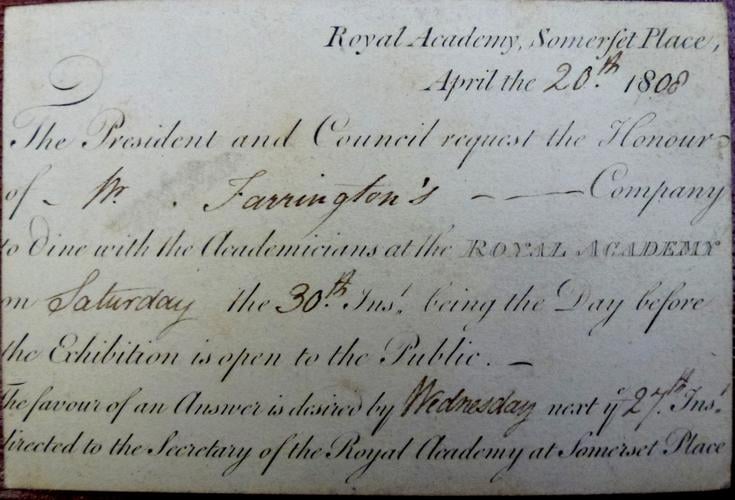 Royal Academy, Somerset Place,
April the 20th. 1808
The President and Council request the Honour
of - Mr. Farrington's - — Company
to Dine with the Academicians at the ROYAL ACADEMY
on Saturday the 30th. Inst. being the Day before
the Exhibition is open to the Public. —
The favour of an Answer is desired by Wednesday next ye 27th. Inst.
directed to the Secretary of the Royal Academy at Somerset Place